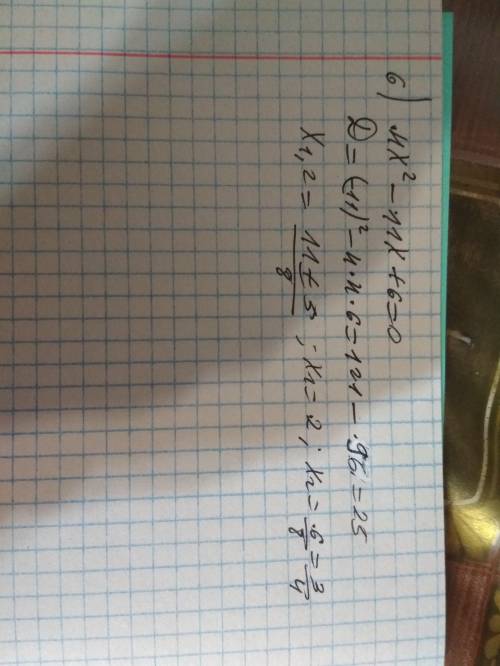 6) 4x² - 11x + 6 = 0
D = (-11)² - 4·4·6 = 121 - 96 = 25
x₁,₂ = (11 ± 5)/8 ; x₁ = 2 ; x₂ = 6/8 = 3/4